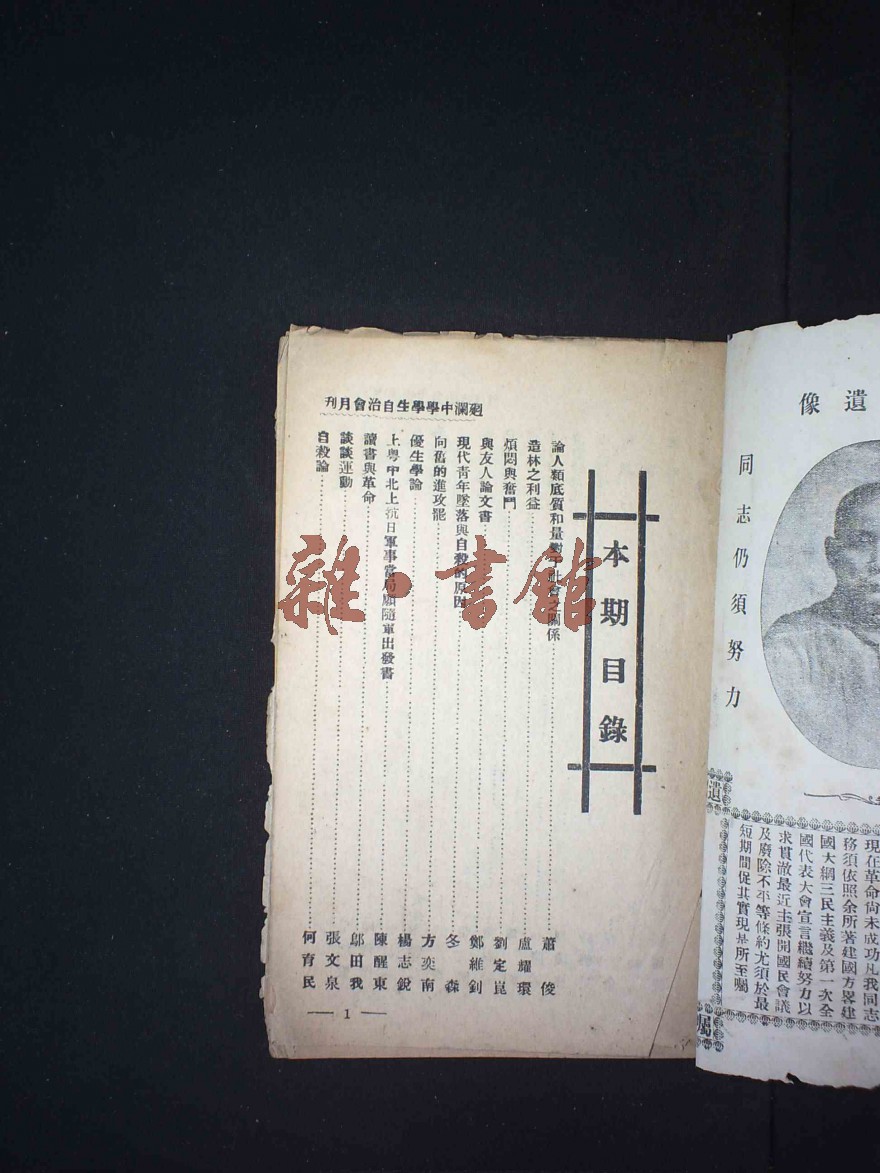 遺像
同志仍須努力
遺
現在革命尚未成功凡我同志
移須依照余所著建國方畧建
國大綱三民主義及第一次全
國代表大會宣言繼續努力以
求貫澈最近主張開國民會議
及廢除不平等條約尤須於最
短期間促其實現是所至囑
囑
本期目錄
論人類底質和量對于社會之關係 蕭俊
造林之利益 盧耀環
煩悶與奮鬥 劉定崑
與友人論文書 鄭維釗
現代靑年墜落與自殺的原因 冬森
向舊的進攻罷 方奕南
優生學論 楊志銳
上粤中北上抗日軍事當局願隨軍出發書 陳醒東
讀書與革命 鄔田我
談談運動 張文泉
自殺論 何育民
廻瀾中學學生自治會月刊
1
雜·書館